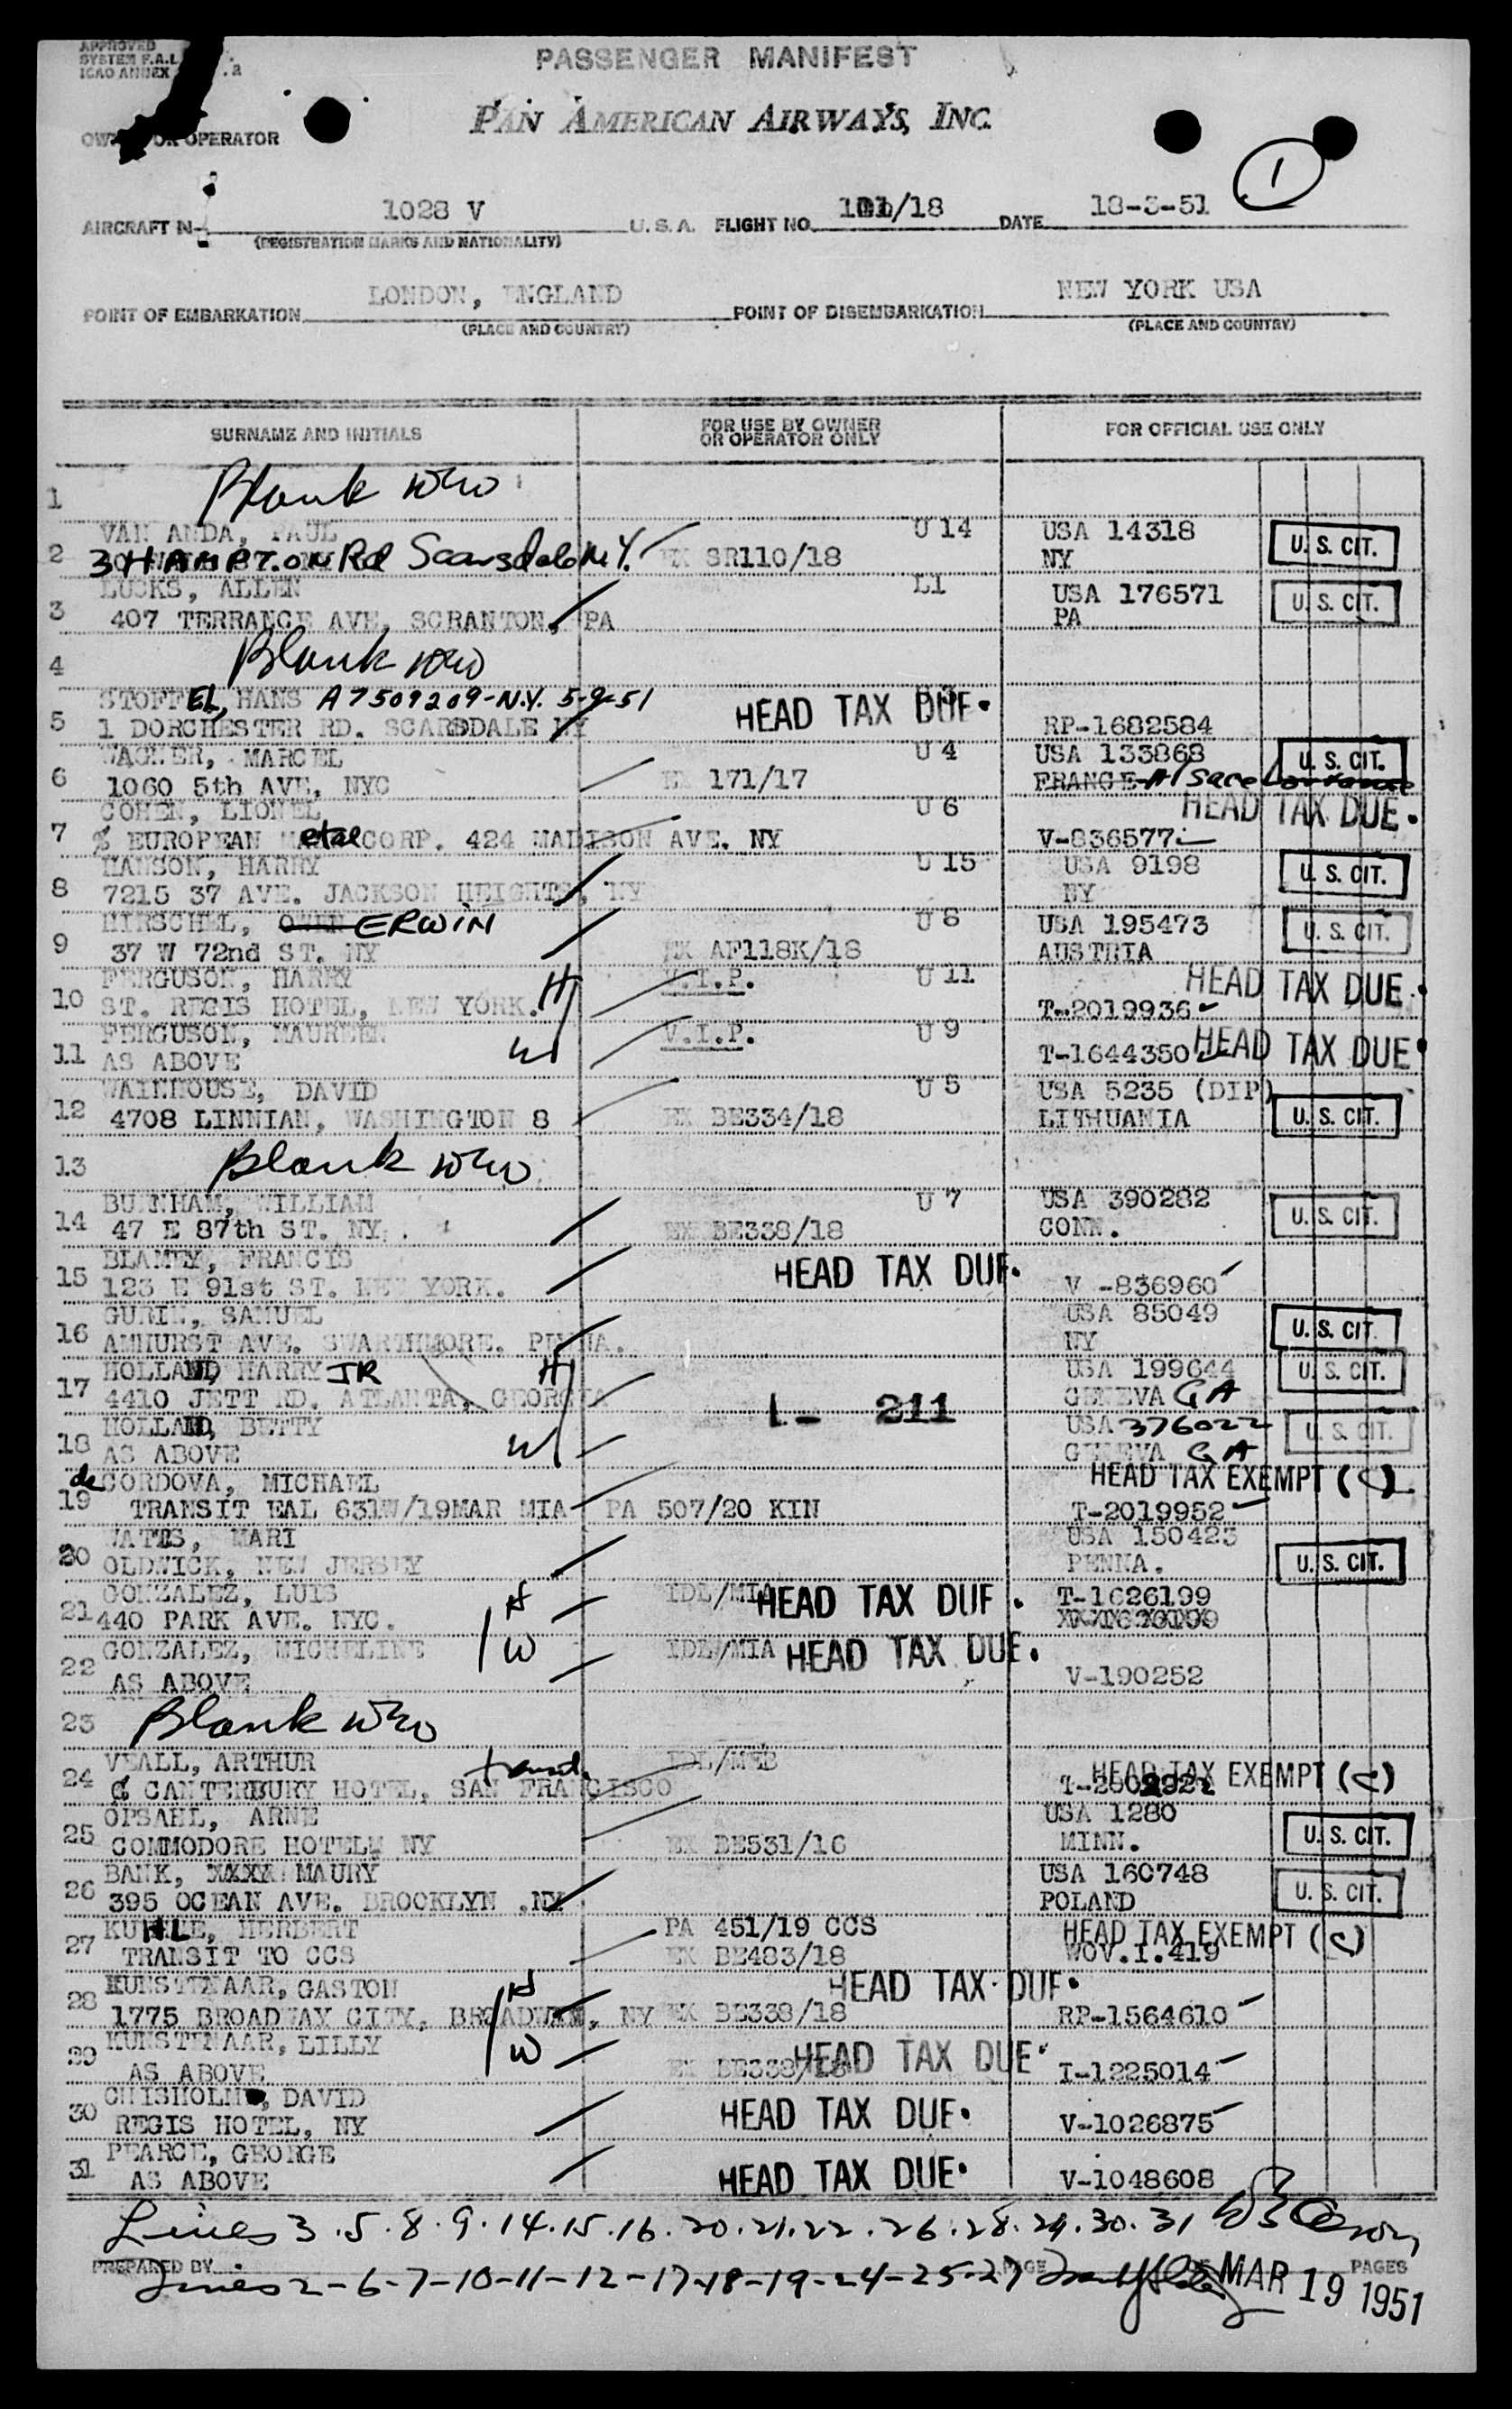 APPROVED
SYSTEM F.A.L.
ICAO ANNEX
PASSENGER MANIFEST
PAN AMERICAN AIRWAYS, INC.
OR OPERATOR
1
AIRCRAFT N- 1028 V U.S.A. FLIGHT NO. /18 DATE 18-3-51
(REGISTRATION MARKS AND NATIONALITY)
POINT OF EMBARKATION LONDON, ENGLAND POINT OF DISEMBARKATION NEW YORK USA
(PLACE AND COUNTRY) (PLACE AND COUNTRY)
SURNAME AND INITIALS FOR USE BY OWNER OR OPERATOR ONLY FOR OFFICIAL USE ONLY
1 Blank
VAN ANDA, PAUL U 14 USA 14318
2 3 HAMPTON Rd Scarsdale N.Y. EX SR110/18 NY U.S. CIT.
LUCKS, ALLEN L1 USA 176571
3 407 TERRANCE AVE, SCRANTON, PA PA U.S. CIT.
4 Blank
STOFFEL, HANS A7509209-N.Y. 5-9-51 HEAD TAX DUE.
5 1 DORCHESTER RD. SCARSDALE NY RP-1682584
WAGNER, MARCEL U 4 USA 133868 U.S. CIT.
6 1060 5th AVE, NYC EX 171/17 FRANCE-Alsace Lorraine
COHEN, LIONEL U 6 HEAD TAX DUE.
7 % EUROPEAN etal CORP. 424 MADISON AVE. NY V-836577
HANSON, HARRY U 15 USA 9198
8 7215 37 AVE. JACKSON HEIGHTS, NY NY U.S. CIT.
HIRSCHEL, ERWIN U 8 USA 195473
9 37 W 72nd ST. NY EX AF118K/18 AUSTRIA U.S. CIT.
FERGUSON, HARRY H V.I.P. U 11 HEAD TAX DUE.
10 ST. REGIS HOTEL, NEW YORK. T-2019936
FERGUSON, MAUREEN W V.I.P. U 9
11 AS ABOVE T-1644350 HEAD TAX DUE
WAINHOUSE, DAVID U 5 USA 5235 (DIP)
12 4708 LINNIAN, WASHINGTON 8 EX BE334/18 LITHUANIA U.S. CIT.
13 Blank
BURNHAM, WILLIAM U 7 USA 390282
14 47 E 87th ST. NY. EX BE338/18 CONN. U.S. CIT.
BLAMEY, FRANCIS HEAD TAX DUE.
15 123 E 91st ST. NEW YORK. V -836960
GURIN, SAMUEL USA 85049
16 AMHURST AVE. SWARTHMORE. PENNA. NY U.S. CIT.
HOLLAND, HARRY JR H USA 199644 U.S. CIT.
17 4410 JETT RD. ATLANTA, GEORGIA 1- 211 GENEVA GA
HOLLAND, BETTY W USA 376022 U.S. CIT.
18 AS ABOVE GENEVA GA
de CORDOVA, MICHAEL HEAD TAX EXEMPT (C)
19 TRANSIT EAL 631W/19MAR MIA PA 507/20 KIN T-2019952
WATTS, MARI USA 150423
20 OLDWICK, NEW JERSEY PENNA. U.S. CIT.
GONZALEZ, LUIS H IDL/MIA HEAD TAX DUE. T-1626199
21 440 PARK AVE. NYC.
GONZALEZ, MICHELINE W IDL/MIA HEAD TAX DUE.
22 AS ABOVE V-190252
23 Blank
VEALL, ARTHUR transit IDL/MEB HEAD TAX EXEMPT (C)
24 % CANTERBURY HOTEL, SAN FRANCISCO
OPSAHL, ARNE USA 1280
25 COMMODORE HOTEL NY EX BE531/16 MINN. U.S. CIT.
BANK, XXXX MAURY USA 160748
26 395 OCEAN AVE. BROOKLYN .NY POLAND U.S. CIT.
KUHLE, HERBERT PA 451/19 CCS HEAD TAX EXEMPT (C)
27 TRANSIT TO CCS EX BE483/18 WOV.I.419
KUNSTENAAR, GASTON H HEAD TAX DUE.
28 1775 BROADWAY CITY, BROADWAY, NY EX BE338/18 RP-1564610
KUNSTENAAR, LILLY W HEAD TAX DUE
29 AS ABOVE EX BE338/18 I-1225014
CHISHOLM, DAVID HEAD TAX DUE.
30 REGIS HOTEL, NY V-1026875
PEARCE, GEORGE HEAD TAX DUE.
31 AS ABOVE V-1048608
Lines 3.5.8.9.14.15.16.20.21.22.26.28.29.30.31
PREPARED BY PAGE OF PAGES
Lines 2-6-7-10-11-12-17-18-19-24-25-27 MAR 19 1951